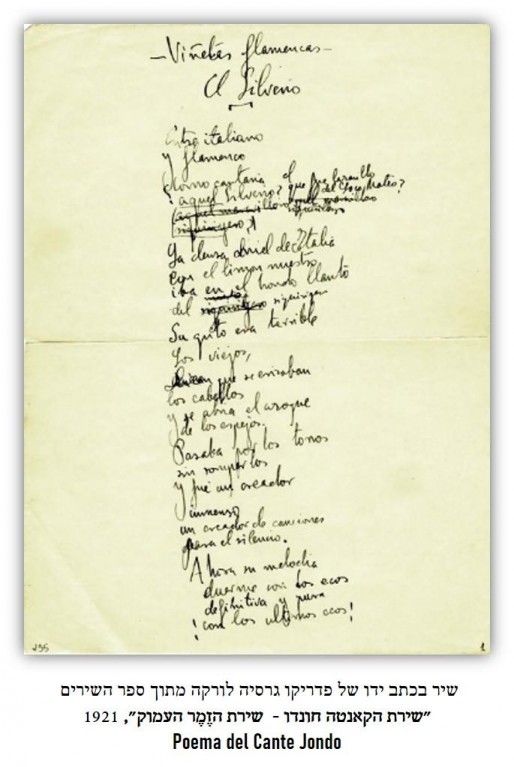 — Viñetas flamencas —
El Silverio
Entre italiano
y flamenco
¿Como cantaria el
aquel Silverio? que fue
del
siguiriyero?
La densa miel de Italia
con el limon nuestro
iba en el hondo llanto
del siguiriyero
Su grito era terrible
Los viejos,
dicen que se erizaban
los cabellos
y se abria el azogue
de los espejos.
Pasaba por los tonos
sin romperlos
y fue un creador
inmenso
un creador de canciones
para el silencio.
Ahora su melodia
duerme con los ecos
definitiva y pura
¡con los ultimos ecos!
295
1
שיר בכתב ידו של פדריקו גרסיה לורקה מתוך ספר השירים
"שירת הקאנטה חונדו - שירת הזֶמֶר העמוק", 1921
Poema del Cante Jondo